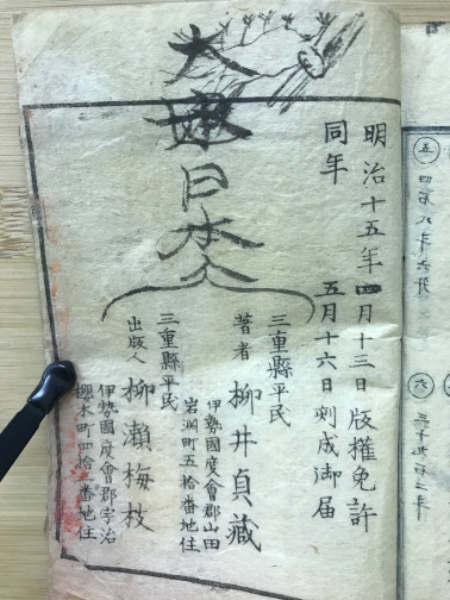 五
六
明治十五年四月十三日版權免許
同年 五月十六日刻成御届
三重縣平民
著者 柳井貞藏
伊勢國度會郡山田
岩淵町五拾番地住
大日本人
三重縣平民
出版人 柳瀨梅枝
伊勢國度會郡宇治
櫻木町四拾三番地住